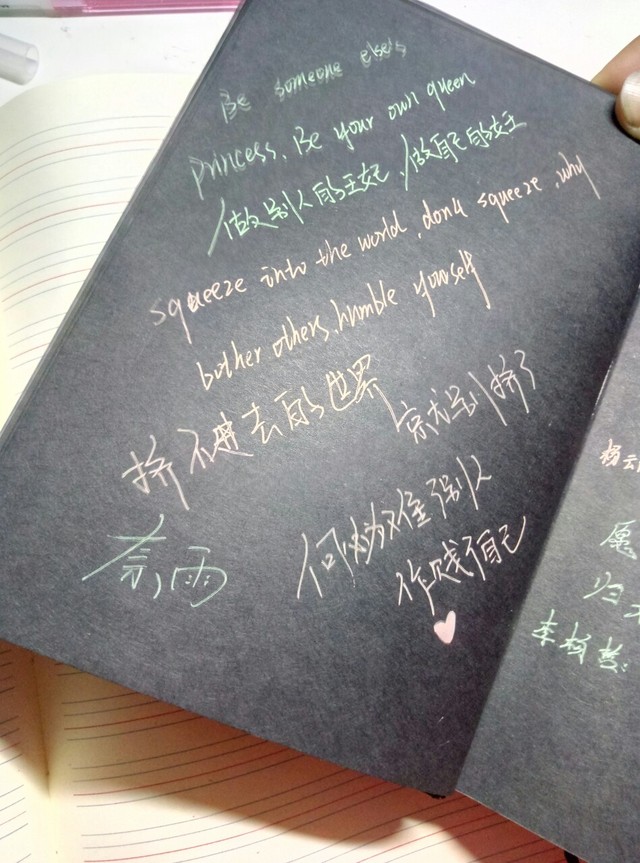 Be someone else's
princess. Be your own queen
做别人的王妃,做自己的女王
squeeze into the world, don't squeeze, why
bother others, humble yourself
挤不进去的世界
就别挤了
何必为难别人
作贱自己
雨
愿
归
李